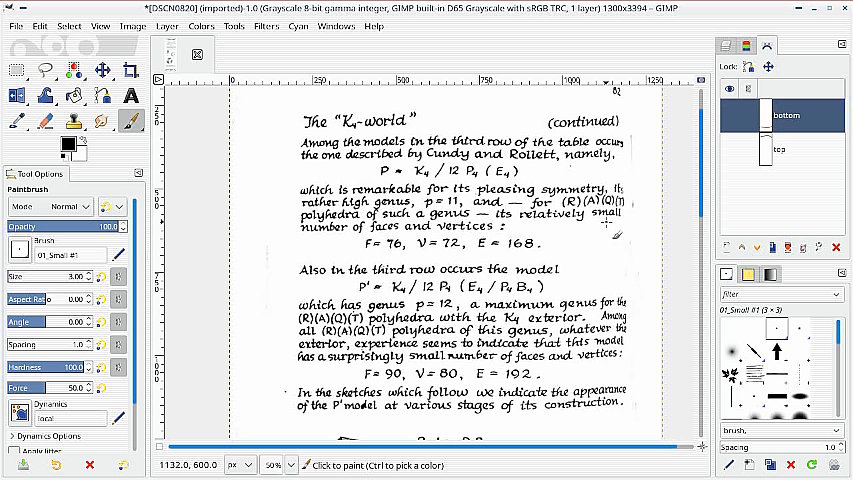 *[DSCN0820] (imported)-1.0 (Grayscale 8-bit gamma integer, GIMP built-in D65 Grayscale with sRGB TRC, 1 layer) 1300x3394 – GIMP
File Edit Select View Image Layer Colors Tools Filters Cyan Windows Help
0 250 500 750 1000 1250
82
The "K₄-world" (continued)
Among the models in the third row of the table occurs
the one described by Cundy and Rollett, namely,
P = K₄ / 12 P₄ (E₄)
which is remarkable for its pleasing symmetry, its
rather high genus, p = 11, and — for (R)(A)(Q)(T)
polyhedra of such a genus — its relatively small
number of faces and vertices :
F = 76, V = 72, E = 168.
Also in the third row occurs the model
P' = K₄ / 12 P₄ (E₄ / P₄ B₄)
which has genus p = 12, a maximum genus for the
(R)(A)(Q)(T) polyhedra with the K₄ exterior. Among
all (R)(A)(Q)(T) polyhedra of this genus, whatever the
exterior, experience seems to indicate that this model
has a surprisingly small number of faces and vertices:
F = 90, V = 80, E = 192.
In the sketches which follow we indicate the appearance
of the P' model at various stages of its construction.
Tool Options
Paintbrush
Mode Normal
Opacity 100.0
Brush
01_Small #1
Size 3.00
Aspect Ratio 0.00
Angle 0.00
Spacing 1.0
Hardness 100.0
Force 50.0
Dynamics
local
Dynamics Options
Apply Jitter
1132.0, 600.0 px 50% Click to paint (Ctrl to pick a color)
Lock:
bottom
top
filter
01_Small #1 (3 × 3)
brush,
Spacing 1.0